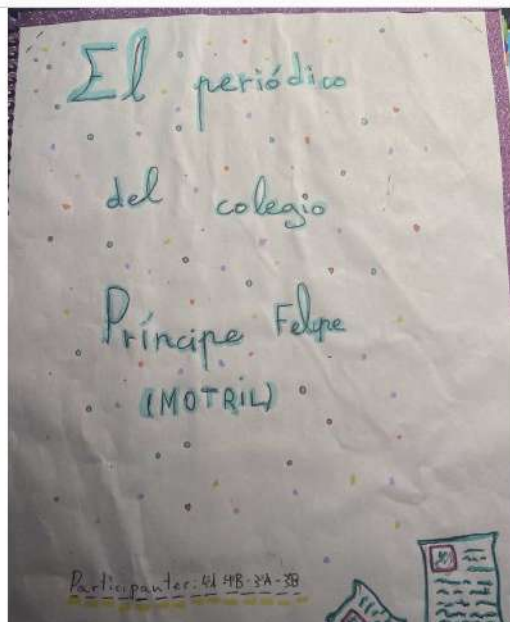 El periódico
del colegio
Príncipe Felipe
(MOTRIL)
Participantes: 4A 4ºB-3ºA-3ºB